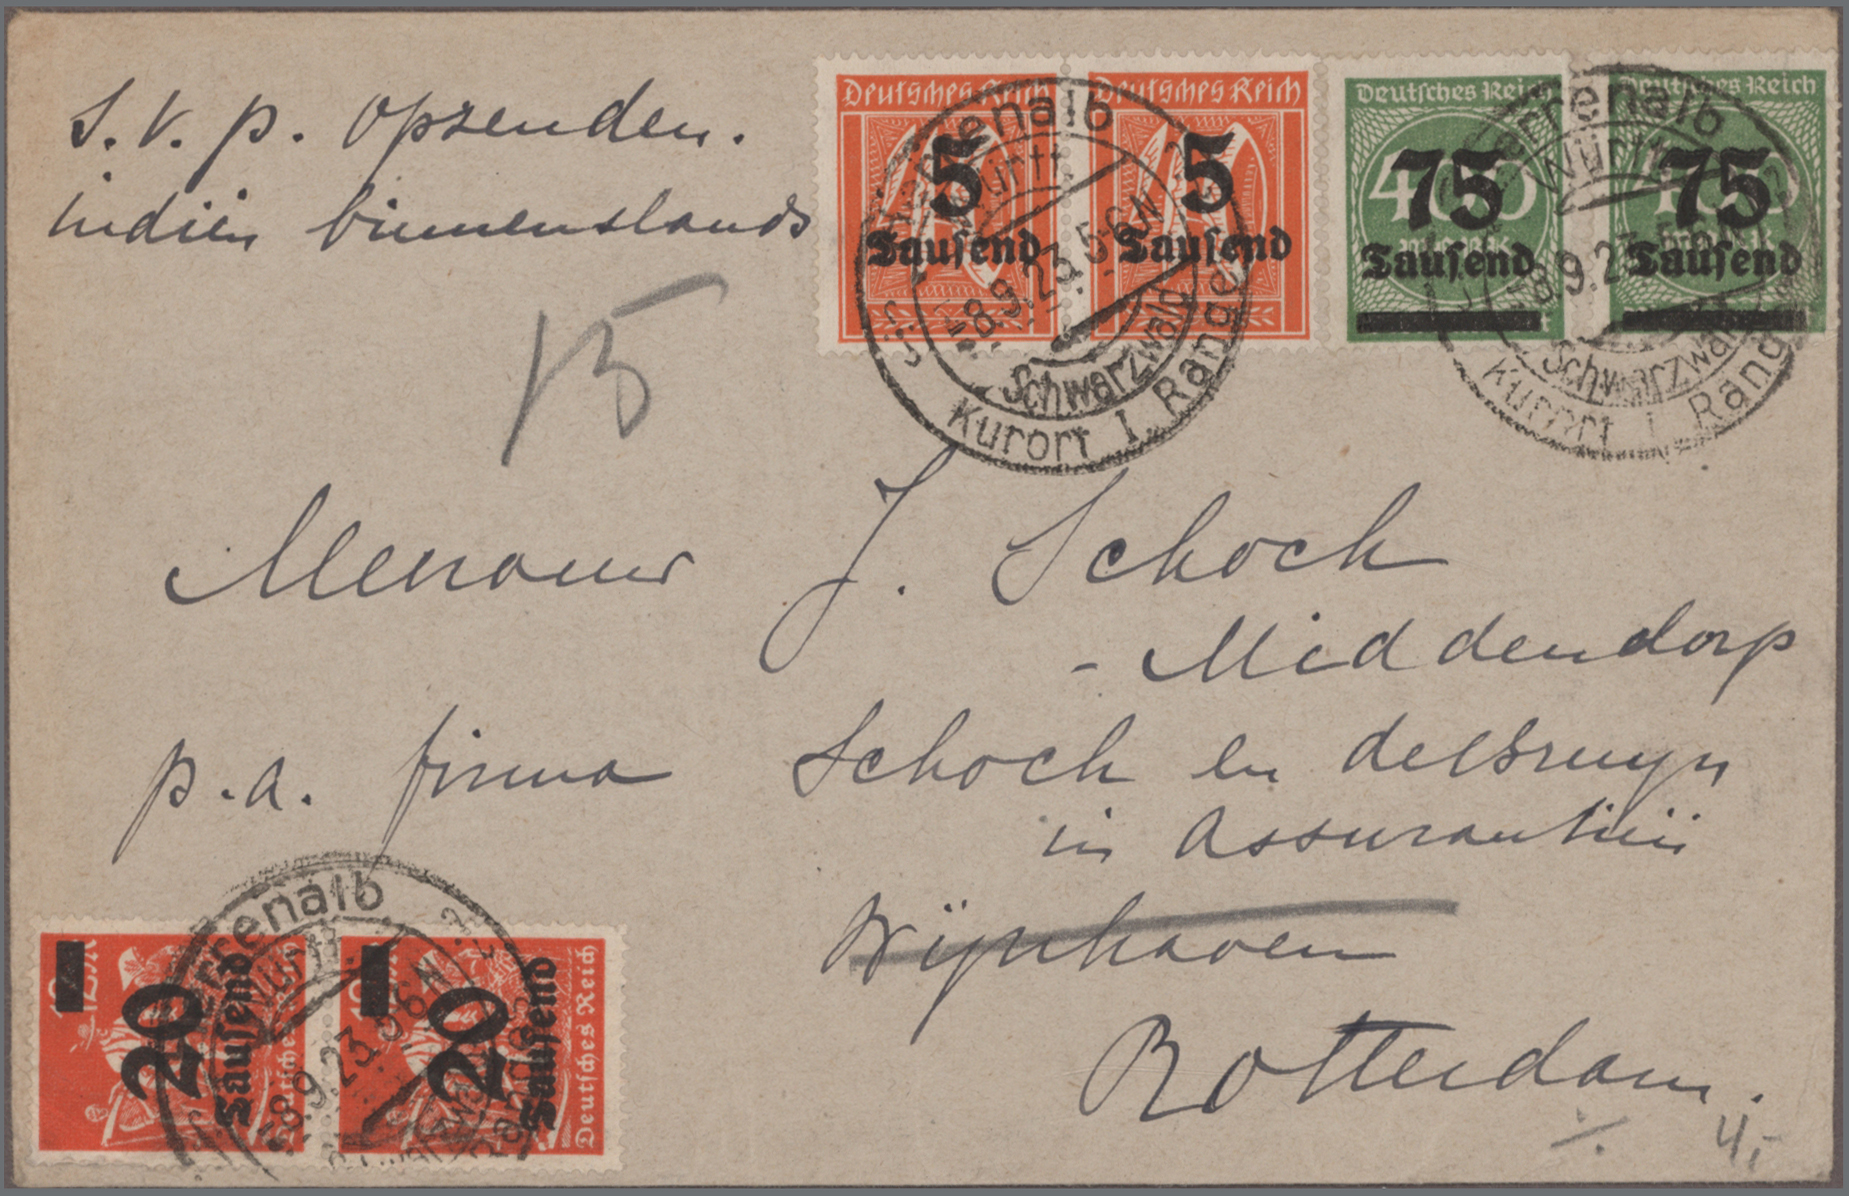 s.v.p. opzenden.
indien binnenslands
15
Deutsches Reich
5
Tausend
Deutsches Reich
5
Tausend
Deutsches Reich
400
75
Tausend
Deutsches Reich
75
Tausend
Herrenalb
Württ
-8.9.23.5-6N
Schwarzwald
Kurort I. Ranges
Herrenalb
Württ
-8.9.23.
Schwarzwald
Kurort I. Rang
Mevrouw J. Schoch
- Middendorp
p.a. firma Schoch en delBruyn
in Assurantiën
Wijnhaven
Rotterdam.
Herrenalb
Württ
-8.9.23.5-6N
20
Tausend
Deutsches Reich
20
Tausend
Deutsches Reich
4,-